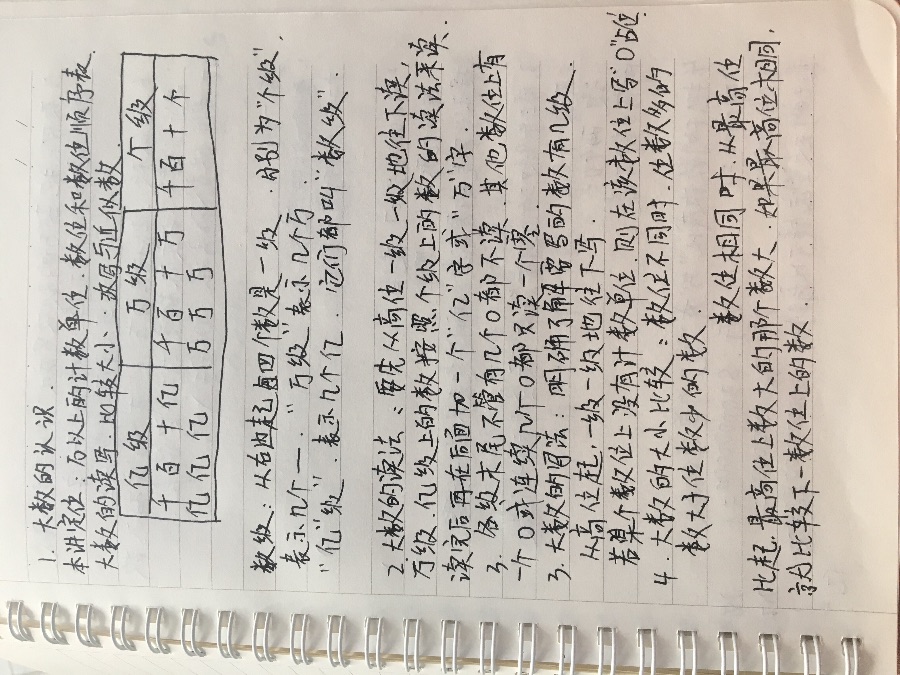 1. 大数的认识.
本讲定位:万以上的计数单位.数位和数位顺序表.
大数的读写.比较大小.改写与近似数.
亿级 万级 个级
千百十亿 千百十万 千百十个
亿亿亿 万万万
数级:从右边起每四个数是一级.分别为"个级".
表示几个一."万级"表示几个万.
"亿级".表示几个亿.它们都叫"数级".
2.大数的读法:要先从高位一级一级地往下读,
万级亿级上的数按照个级上的数的读法来读.
读完后再在后面加一个"亿"字或"万"字.
3. 各级末尾不管有几个0都不读.其他数位上有
一个0或连续几个0都只读一个零.
3. 大数的写法:明确了解需写的数有几级.
从高位起.一级一级地往下写.
若某个数位上没有计数单位.则在该数位上写"0"占位.
4. 大数的大小比较:数位不同时.位数多的
数大于位数少的数.
数位相同时.从最高位
比起.最高位上数大的那个数大.如果最高位相同.
就比较下一数位上的数.